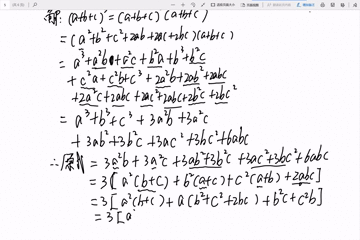 解: (a+b+c)³=(a+b+c)²(a+b+c)
=(a²+b²+c²+2ab+2ac+2bc)(a+b+c)
= a³+a²b+a²c+b²a+b³+b²c
+c²a+c²b+c³+2a²b+2ab²+2abc
+2a²c+2abc+2ac²+2abc+2b²c+2bc²
= a³+b³+c³+3a²b+3a²c
+3ab²+3b²c+3ac²+3bc²+6abc
∴原式=3a²b+3a²c+3ab²+3b²c+3ac²+3bc²+6abc
=3[a²(b+c)+b²(a+c)+c²(a+b)+2abc]
=3[a²(b+c)+a(b²+c²+2bc)+b²c+c²b]
=3[a